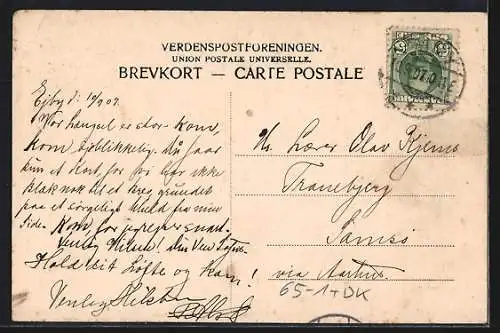 VERDENSPOSTFORENINGEN.
UNION POSTALE UNIVERSELLE.
BREVKORT — CARTE POSTALE
5 5
Ejby d. 07.
Vor længsel er stor – Kom,
Kom, øjeblikkelig. Du faar
kun et Kort, for vi har ikke
Blæk nok til et Brev, grundet
paa et sørgeligt Uheld fra min
Side. Kom, for
Venlig Hilsen! Din Ven
Hold dit Løfte og kom!
Venlig Hilsen
Hr. Lærer Olav Kjems
Tranebjerg
Samsø
via Aarhus.
65-1+DK